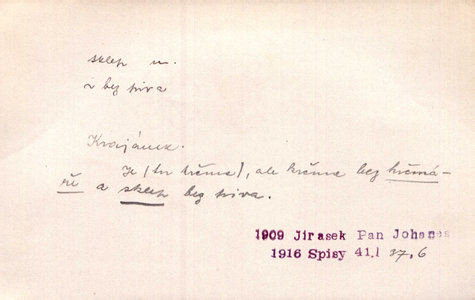 sklep m.
i bez piva
Krajánek.
Je (tu krčma), ale krčma bez krčmá-
ře a sklep bez piva.
1909 Jirasek Pan Johanes
1916 Spisy 41.1 37,6